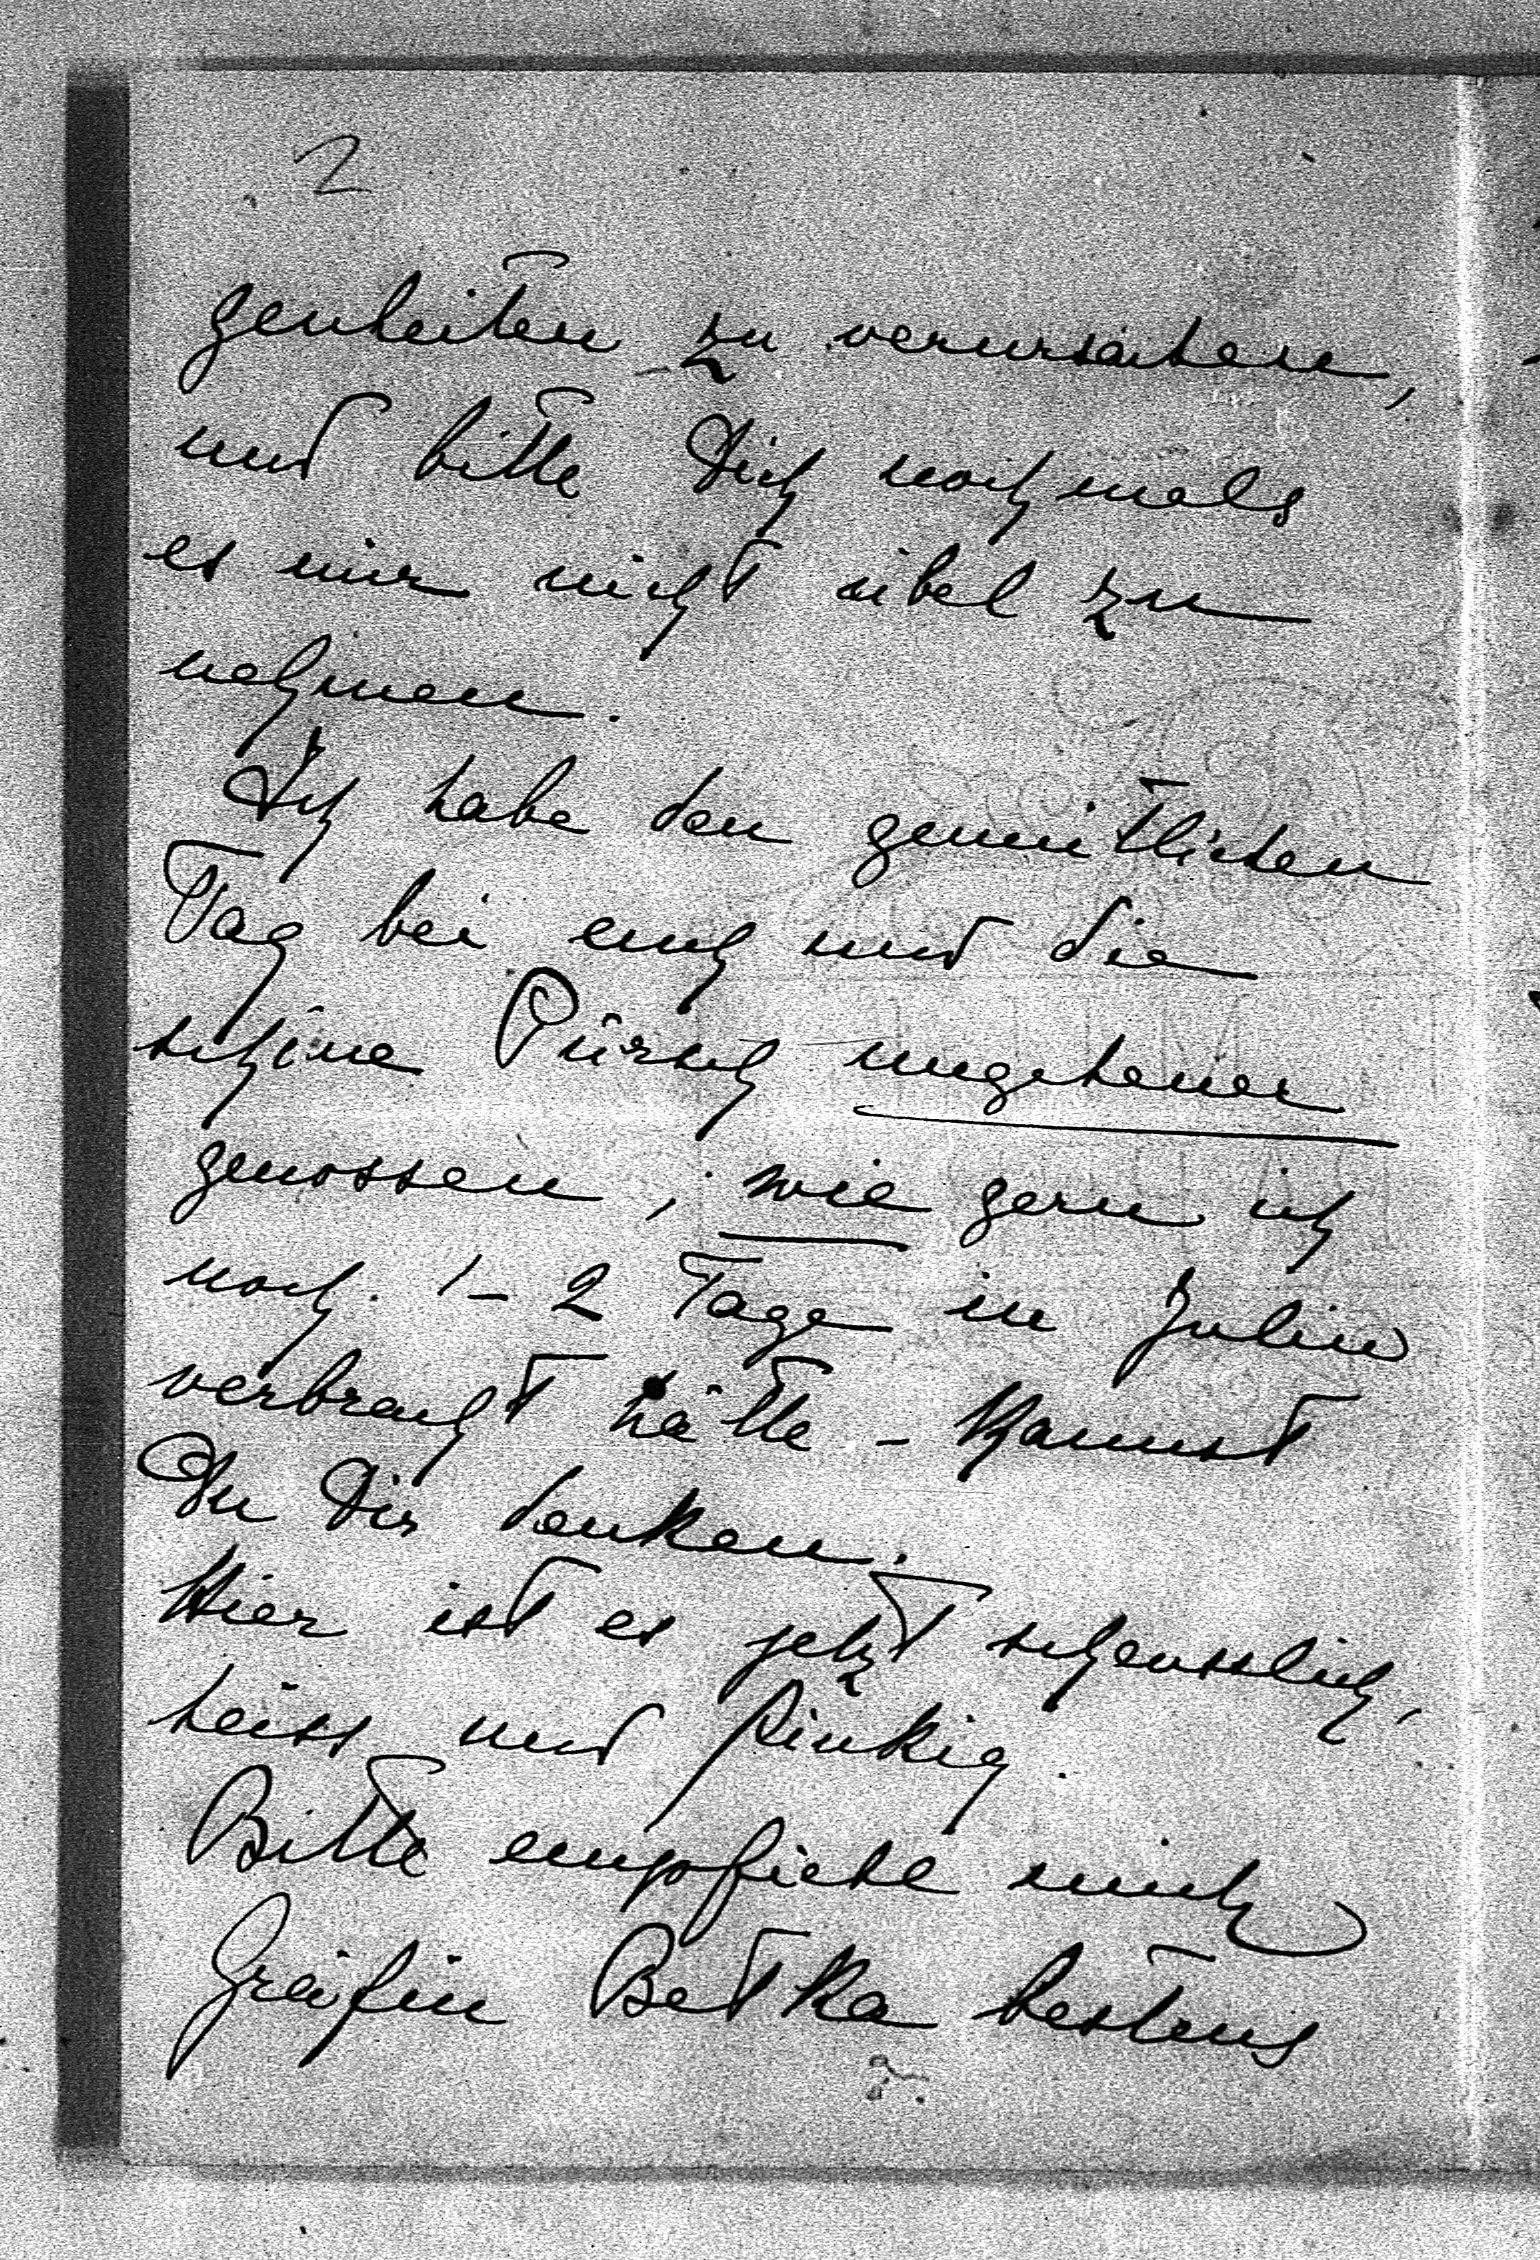 2
genheiten zu verursachen,
und bitte Dich nochmals
es mir nicht übel zu
nehmen.
Ich habe den gemütlichen
Tag bei euch und die
schöne Pürsch ungeheuer
genossen, wie gern ich
noch 1-2 Tage in
verbracht hätte - kannst
Du Dir denken.
Hier ist es jetzt scheusslich,
heiss und
Bitte empfiehl mich
Gräfin Betka bestens